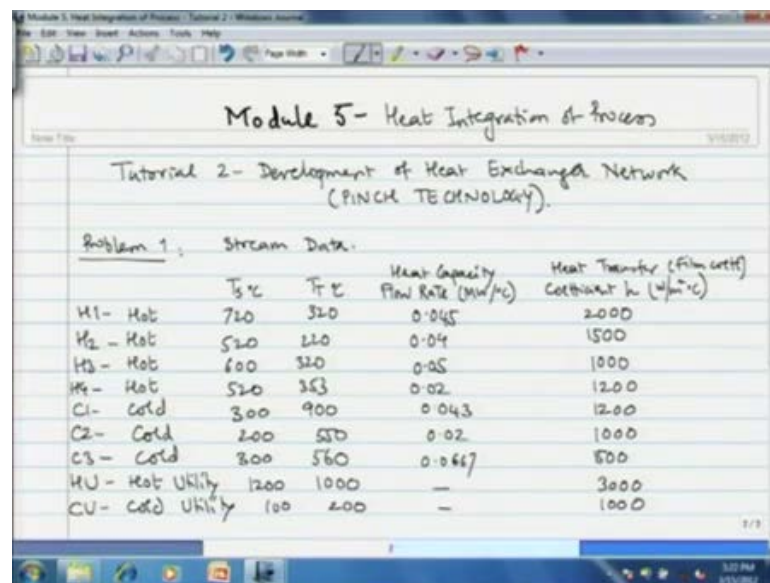 Module 5. Heat Integration of Process - Tutorial 2 - Windows Journal
File Edit View Insert Actions Tools Help
Page Width
Module 5- Heat Integration of Process
Note Title
5/15/2012
Tutorial 2- Development of Heat Exchanger Network
(PINCH TECHNOLOGY).
Problem 1: Stream Data.
Ts °C TT °C Heat Capacity Flow Rate (MW/°C) Heat Transfer (Film coeff) Coefficient h (W/m²°C)
H1- Hot 720 320 0.045 2000
H2 - Hot 520 220 0.04 1500
H3- Hot 600 320 0.05 1000
H4- Hot 520 353 0.02 1200
C1- Cold 300 900 0.043 1200
C2- Cold 200 550 0.02 1000
C3- Cold 300 560 0.0667 800
HU- Hot Utility 1200 1000 - 3000
CU- Cold Utility 100 200 - 1000
3:22 PM